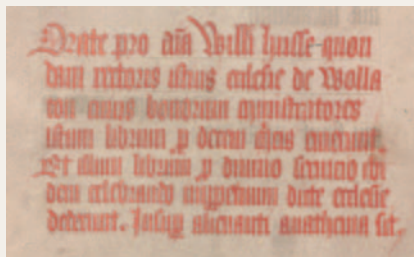 Orate pro aīa Willi husse quon
dam rectoris istius ecclesie de Wolla
ton cuius bonorum amistratores
istum librum p decem mͬcas emerunt.
Et illum librum p diuino seruicio ibi
dem celebrando imppetuum dicte ecclesie
dederunt. Insup alienanti anathema sit.